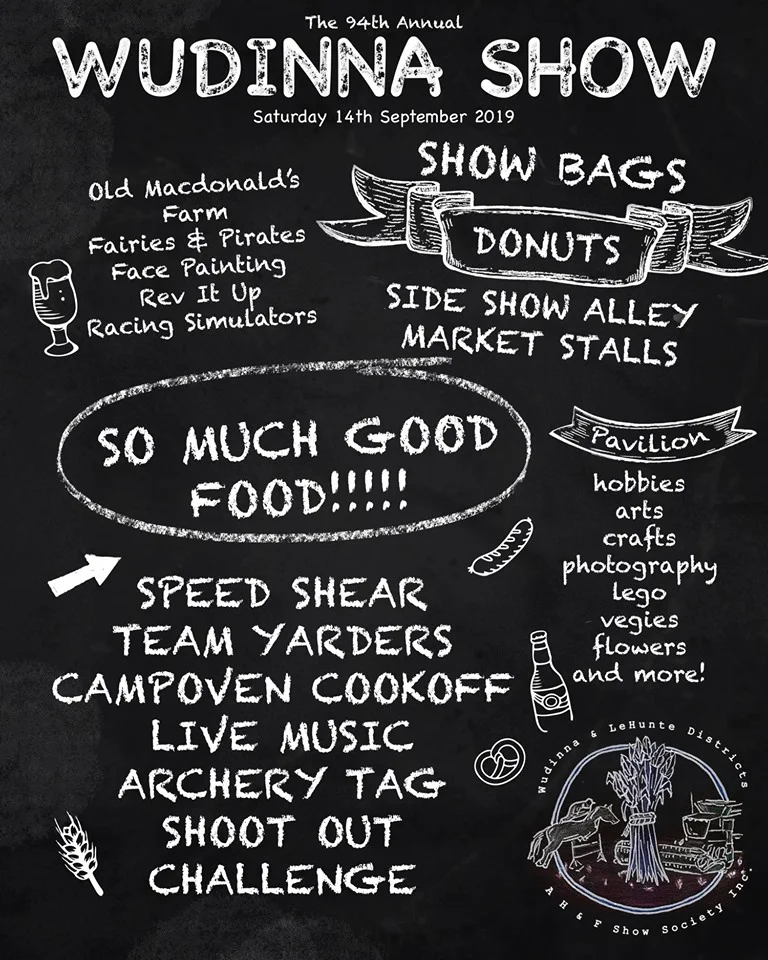 The 94th Annual
WUDINNA SHOW
Saturday 14th September 2019
Old Macdonald's
Farm
Fairies & Pirates
Face Painting
Rev It Up
Racing Simulators
SHOW BAGS
DONUTS
SIDE SHOW ALLEY
MARKET STALLS
SO MUCH GOOD
FOOD!!!!!
Pavilion
hobbies
arts
crafts
photography
lego
vegies
flowers
and more!
SPEED SHEAR
TEAM YARDERS
CAMPOVEN COOKOFF
LIVE MUSIC
ARCHERY TAG
SHOOT OUT
CHALLENGE
Wudinna & LeHunte Districts
A H & F Show Society Inc.